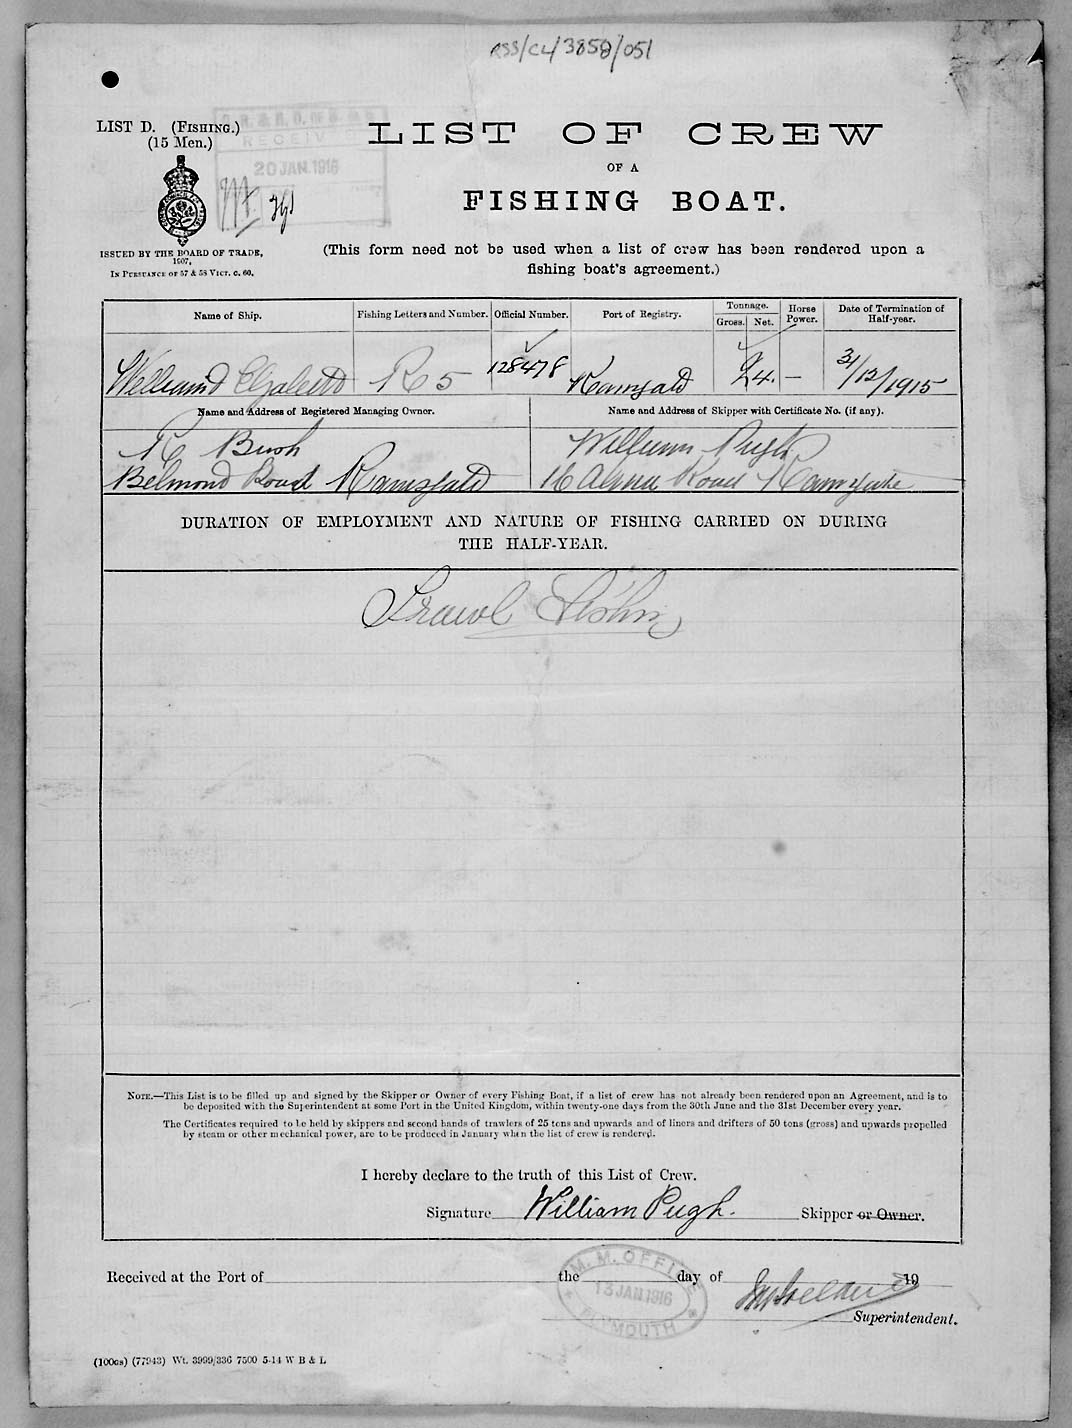 RSS/CL/3858/051
LIST D. (FISHING.)
(15 Men.)
RECEIV
20 JAN. 1916
LIST OF CREW
OF A
FISHING BOAT.
ISSUED BY THE BOARD OF TRADE,
1907,
IN PURSUANCE OF 57 & 58 VICT. C. 60.
(This form need not be used when a list of crew has been rendered upon a
fishing boat's agreement.)
Name of Ship. Fishing Letters and Number. Official Number. Port of Registry. Tonnage. Horse Power. Date of Termination of Half-year.
Gross. Net.
William & Elizabeth R 5 128478 Ramsgate 24. — 31/12/1915
Name and Address of Registered Managing Owner. Name and Address of Skipper with Certificate No. (if any).
R Bush William Pugh
Belmond Road Ramsgate 16 Alma Road Ramsgate
DURATION OF EMPLOYMENT AND NATURE OF FISHING CARRIED ON DURING
THE HALF-YEAR.
Trawl Fishing
NOTE.—This List is to be filled up and signed by the Skipper or Owner of every Fishing Boat, if a list of crew has not already been rendered upon an Agreement, and is to
be deposited with the Superintendent at some Port in the United Kingdom, within twenty-one days from the 30th June and the 31st December every year.
The Certificates required to be held by skippers and second hands of trawlers of 25 tons and upwards and of liners and drifters of 50 tons (gross) and upwards propelled
by steam or other mechanical power, are to be produced in January when the list of crew is rendered.
I hereby declare to the truth of this List of Crew.
Signature William Pugh. Skipper or Owner.
Received at the Port of the day of 19
M. M. OFFICE
13 JAN 1916
PLYMOUTH
Superintendent.
(100GS) (77943) Wt. 3999/336 7500 5-14 W B & L